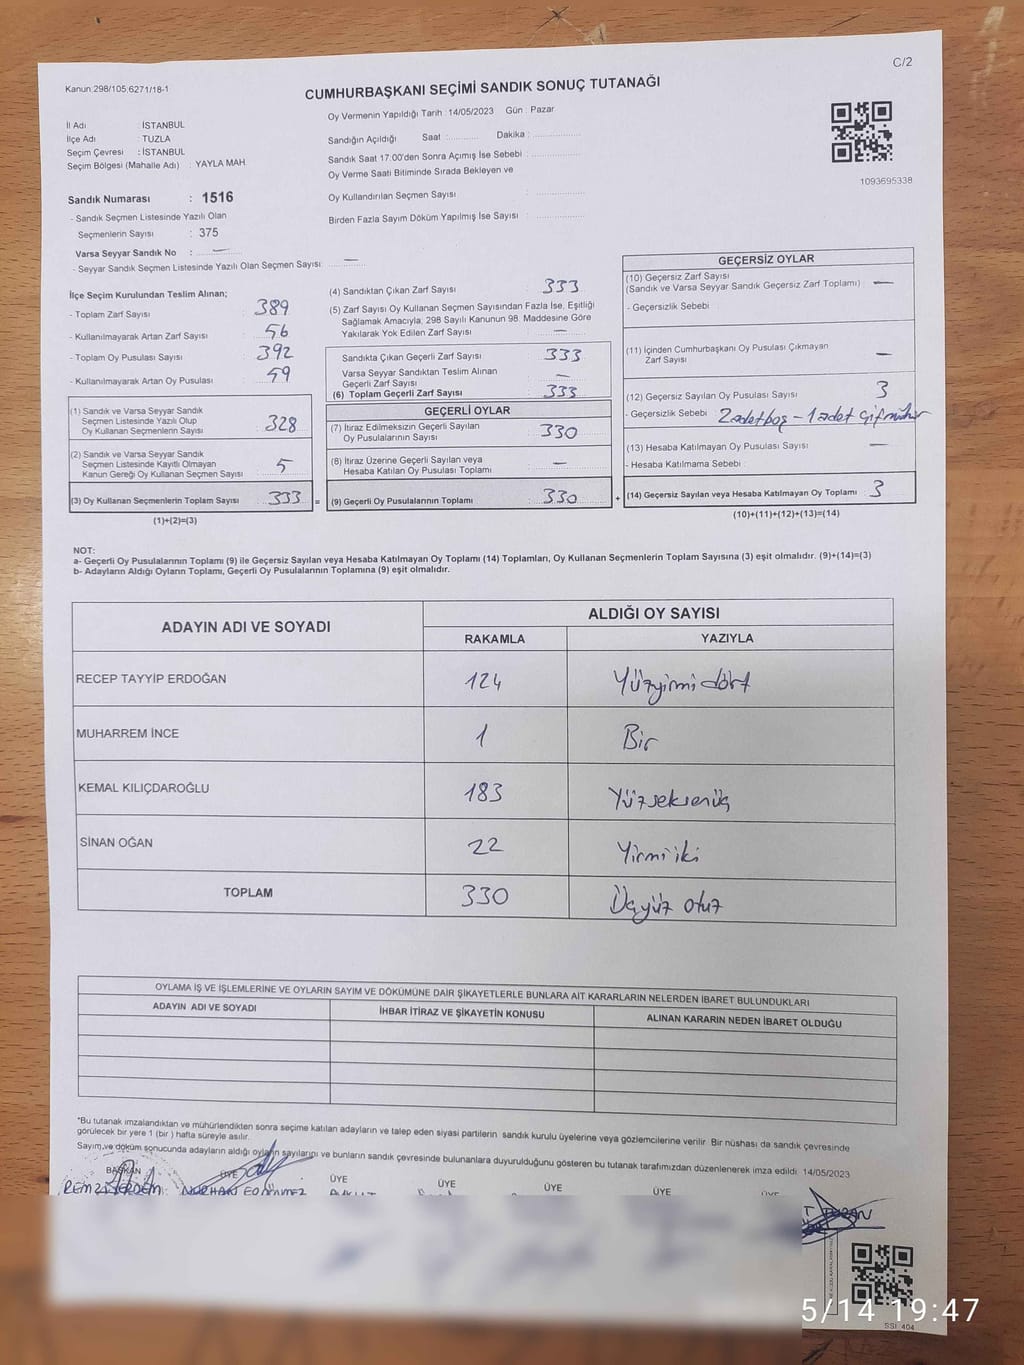 C/2
Kanun:298/105;6271/18-1
CUMHURBAŞKANI SEÇİMİ SANDIK SONUÇ TUTANAĞI
Oy Vermenin Yapıldığı Tarih : 14/05/2023 Gün : Pazar
İl Adı : İSTANBUL
İlçe Adı : TUZLA
Seçim Çevresi : İSTANBUL
Seçim Bölgesi (Mahalle Adı) : YAYLA MAH
Sandığın Açıldığı Saat : Dakika :
Sandık Saat 17:00'den Sonra Açımış İse Sebebi :
Oy Verme Saati Bitiminde Sırada Bekleyen ve
Oy Kullandırılan Seçmen Sayısı :
Birden Fazla Sayım Döküm Yapılmış İse Sayısı :
1093695338
Sandık Numarası : 1516
- Sandık Seçmen Listesinde Yazılı Olan
Seçmenlerin Sayısı : 375
Varsa Seyyar Sandık No : —
- Seyyar Sandık Seçmen Listesinde Yazılı Olan Seçmen Sayısı: —
İlçe Seçim Kurulundan Teslim Alınan;
- Toplam Zarf Sayısı : 389
- Kullanılmayarak Artan Zarf Sayısı : 56
- Toplam Oy Pusulası Sayısı : 392
- Kullanılmayarak Artan Oy Pusulası : 59
(1) Sandık ve Varsa Seyyar Sandık
Seçmen Listesinde Yazılı Olup
Oy Kullanan Seçmenlerin Sayısı : 328
(2) Sandık ve Varsa Seyyar Sandık
Seçmen Listesinde Kayıtlı Olmayan
Kanun Gereği Oy Kullanan Seçmen Sayısı : 5
(3) Oy Kullanan Seçmenlerin Toplam Sayısı : 333 =
(1)+(2)=(3)
(4) Sandıktan Çıkan Zarf Sayısı : 333
(5) Zarf Sayısı Oy Kullanan Seçmen Sayısından Fazla İse, Eşitliği
Sağlamak Amacıyla; 298 Sayılı Kanunun 98. Maddesine Göre
Yakılarak Yok Edilen Zarf Sayısı : —
Sandıkta Çıkan Geçerli Zarf Sayısı : 333
Varsa Seyyar Sandıktan Teslim Alınan
Geçerli Zarf Sayısı : —
(6) Toplam Geçerli Zarf Sayısı : 333
GEÇERLİ OYLAR
(7) İtiraz Edilmeksizin Geçerli Sayılan
Oy Pusulalarının Sayısı : 330
(8) İtiraz Üzerine Geçerli Sayılan veya
Hesaba Katılan Oy Pusulası Toplamı : —
(9) Geçerli Oy Pusulalarının Toplamı : 330 +
GEÇERSİZ OYLAR
(10) Geçersiz Zarf Sayısı
(Sandık ve Varsa Seyyar Sandık Geçersiz Zarf Toplamı) : —
- Geçersizlik Sebebi :
(11) İçinden Cumhurbaşkanı Oy Pusulası Çıkmayan
Zarf Sayısı : —
(12) Geçersiz Sayılan Oy Pusulası Sayısı : 3
- Geçersizlik Sebebi : 2 adet boş - 1 adet çift mühür
(13) Hesaba Katılmayan Oy Pusulası Sayısı : —
- Hesaba Katılmama Sebebi :
(14) Geçersiz Sayılan veya Hesaba Katılmayan Oy Toplamı : 3
(10)+(11)+(12)+(13)=(14)
NOT:
a- Geçerli Oy Pusulalarının Toplamı (9) ile Geçersiz Sayılan veya Hesaba Katılmayan Oy Toplamı (14) Toplamları, Oy Kullanan Seçmenlerin Toplam Sayısına (3) eşit olmalıdır. (9)+(14)=(3)
b- Adayların Aldığı Oyların Toplamı, Geçerli Oy Pusulalarının Toplamına (9) eşit olmalıdır.
ADAYIN ADI VE SOYADI
ALDIĞI OY SAYISI
RAKAMLA YAZIYLA
RECEP TAYYİP ERDOĞAN 124 Yüzyirmi dört
MUHARREM İNCE 1 Bir
KEMAL KILIÇDAROĞLU 183 Yüzseksenüç
SİNAN OĞAN 22 Yirmi iki
TOPLAM 330 Üçyüz otuz
OYLAMA İŞ VE İŞLEMLERİNE VE OYLARIN SAYIM VE DÖKÜMÜNE DAİR ŞİKAYETLERLE BUNLARA AİT KARARLARIN NELERDEN İBARET BULUNDUKLARI
ADAYIN ADI VE SOYADI İHBAR İTİRAZ VE ŞİKAYETİN KONUSU ALINAN KARARIN NEDEN İBARET OLDUĞU
*Bu tutanak imzalandıktan ve mühürlendikten sonra seçime katılan adayların ve talep eden siyasi partilerin sandık kurulu üyelerine veya gözlemcilerine verilir. Bir nüshası da sandık çevresinde
görülecek bir yere 1 (bir ) hafta süreyle asılır.
Sayım ve döküm sonucunda adayların aldığı oyların sayılarını ve bunların sandık çevresinde bulunanlara duyurulduğunu gösteren bu tutanak tarafımızdan düzenlenerek imza edildi. 14/05/2023
BAŞKAN ÜYE ÜYE ÜYE ÜYE ÜYE ÜYE
5/14 19:47
SSI: 404